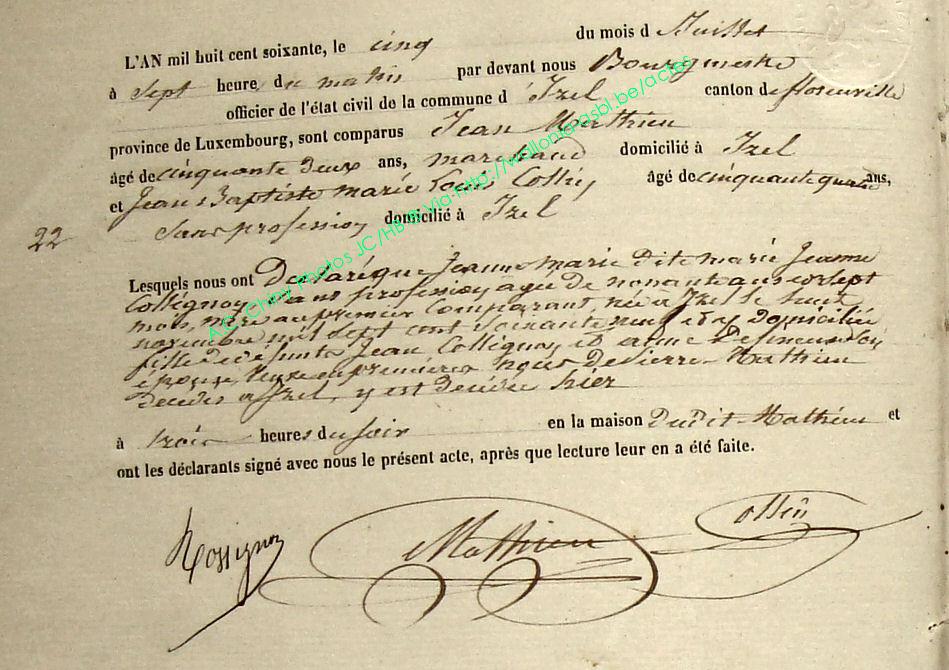 L'AN mil huit cent soixante, le cinq du mois d Juillet
à Sept heure du matin par devant nous Bourgmestre
officier de l'état civil de la commune d'Izel canton de florenville
province de Luxembourg, sont comparus Jean Mathieu
âgé de cinquante deux ans, marchand domicilié à Izel
et Jean Baptiste marie Louis Collin âgé de cinquante quatre ans,
22 Sans profession domicilié à Izel
Lesquels nous ont Déclaré que Jeanne marie dite marie Jeanne
Collignon Sans profession agée de nonante ans et sept
mois, mère au premier Comparant, née a Izel le huit
novembre mil sept cent Soixante neuf et y domiciliée
fille de défunts Jean Collignon et anne
épouse Veuve en premières Noces De Pierre Mathieu
décédé a Izel, y est décédée hier
à trois heures du Soir en la maison Dudit Mathieu et
ont les déclarants signé avec nous le présent acte, après que lecture leur en a été faite.
Rossignon Mathieu Collin
AC/ Chiny Photos JC/HB ® via http://wallonia-asbl.be/actes